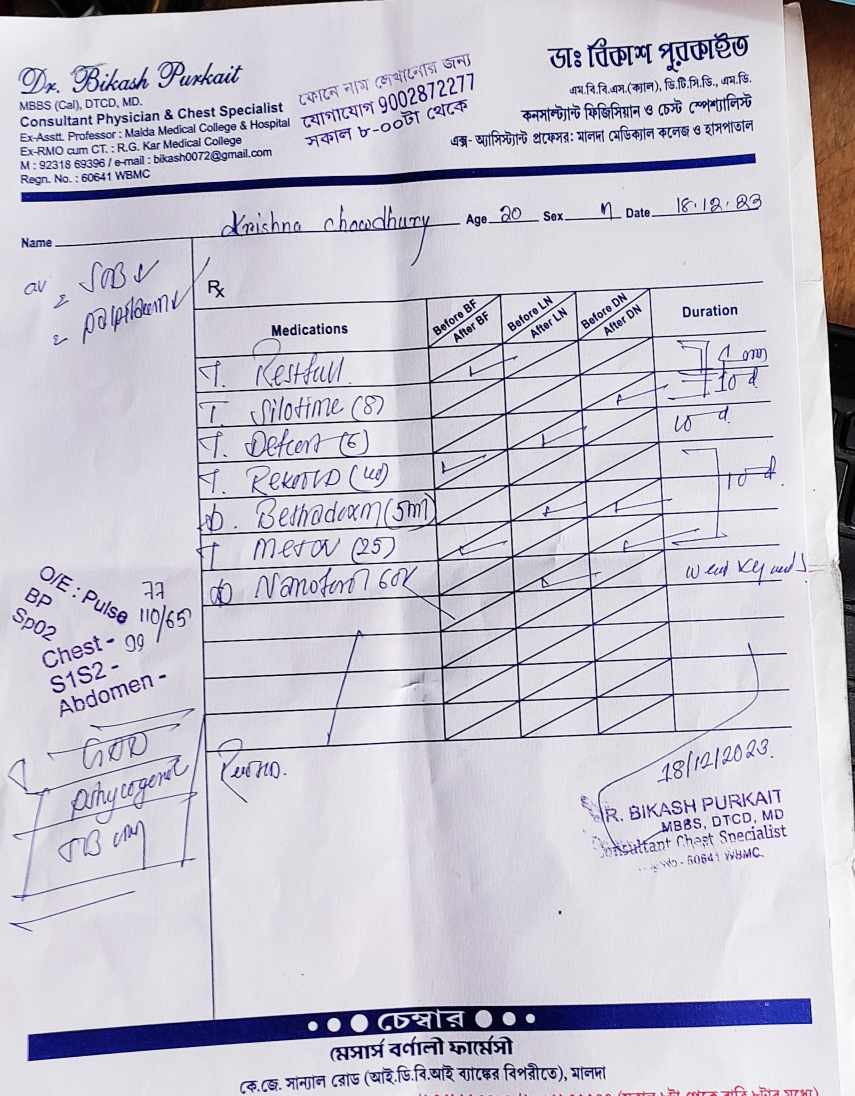 Dr. Bikash Purkait
MBBS (Cal), DTCD, MD.
Consultant Physician & Chest Specialist
Ex-Asstt. Professor : Malda Medical College & Hospital
Ex-RMO cum CT. : R.G. Kar Medical College
M : 92318 69396 / e-mail : bikash0072@gmail.com
Regn. No. : 60641 WBMC
ফোনে নাম লেখানোর জন্য
যোগাযোগ 9002872277
সকাল ৮-০০টা থেকে
ডাঃ বিকাশ পুরকাইত
এম.বি.বি.এস.(ক্যাল), ডি.টি.সি.ডি., এম.ডি.
কনসালট্যান্ট ফিজিসিয়ান ও চেস্ট স্পেশালিস্ট
এক্স- অ্যাসিস্ট্যান্ট প্রফেসর: মালদা মেডিক্যাল কলেজ ও হাসপাতাল
Name Krishna Chowdhury Age 20 Sex M Date 18.12.23
SOB
Rx
Medications Before BF After BF Before LN After LN Before DN After DN Duration
T. Restfull
T. Silotime (8) 10 d
T. Defcort (6) 10 d
T. (40)
(5ml) 10 d
T (25)
60K
O/E : Pulse 77
BP 110/65
SpO2 99
Chest -
S1S2 -
Abdomen -
18/12/2023.
DR. BIKASH PURKAIT
MBBS, DTCD, MD
Consultant Chest Specialist
No - 60641 WBMC
চেম্বার
মেসার্স বর্ণালী ফার্মেসী
কে.জে. সান্যাল রোড (আই.ডি.বি.আই ব্যাঙ্কের বিপরীতে), মালদা